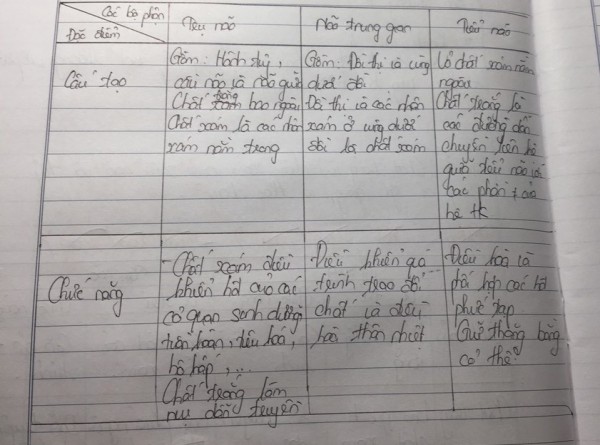 Các bộ phận
Đặc điểm
Trụ não
Não trung gian
Tiểu não
Cấu tạo
Gồm: Hành tuỷ,
cầu não và não giữa
Chất trắng bao ngoài
Chất xám là các nhân
xám nằm trong
Gồm: Đồi thị và vùng
dưới đồi
Đồi thị và các nhân
xám ở vùng dưới
đồi là chất xám
Vỏ chất xám nằm
ngoài
Chất trắng là
các đường dẫn
truyền liên hệ
giữa tiểu não với
các phần # của
hệ tk
Chức năng
- Chất xám điều
khiển hđ của các
cơ quan sinh dưỡng
tuần hoàn, tiêu hoá,
hô hấp, ...
Chất trắng làm
nvụ dẫn truyền
Điều khiển quá
trình trao đổi
chất và điều
hoà thân nhiệt
Điều hoà và
phối hợp các hđ
phức tạp
Giữ thăng bằng
cơ thể